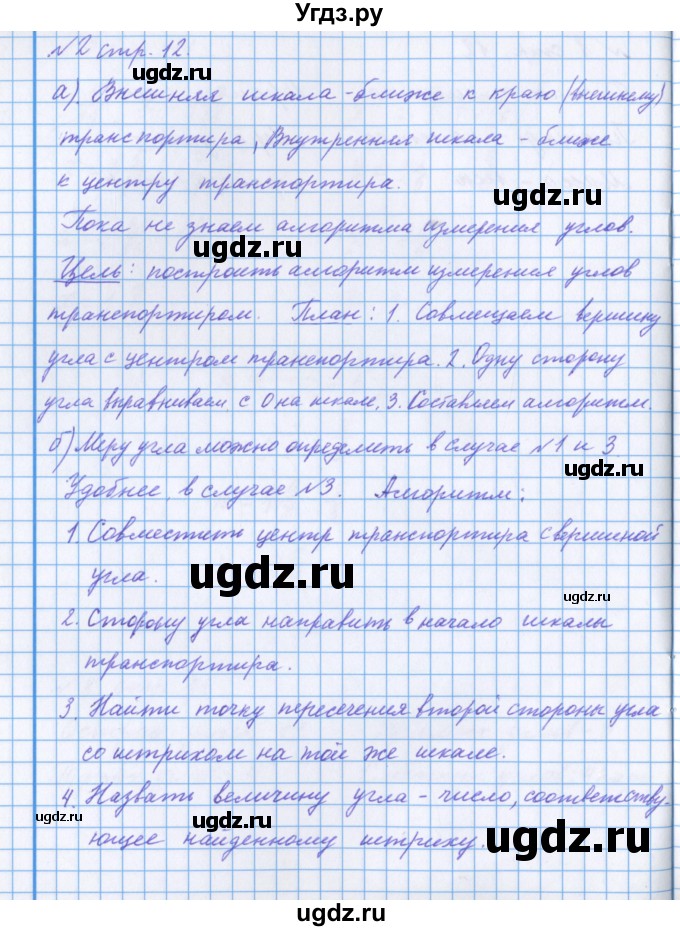 Угдз.ру
№2 стр. 12.
а). Внешняя шкала - ближе к краю (внешнему)
транспортира, Внутренняя шкала - ближе
к центру транспортира.
Пока не знаем алгоритма измерения углов.
Цель: построить алгоритм измерения углов
транспортиром. План: 1. Совмещаем вершину
угла с центром транспортира. 2. Одну сторону
угла выравниваем с 0 на шкале. 3. Составляем алгоритм.
б) Меру угла можно определить в случае №1 и 3
Удобнее в случае №3. Алгоритм:
1. Совместить центр транспортира с вершиной
угла.
2. Сторону угла направить в начало шкалы
транспортира.
3. Найти точку пересечения второй стороны угла
со штрихом на той же шкале.
4. Назвать величину угла - число, соответству-
ющее найденному штриху.
ugdz.ru
ugdz.ru
ugdz.ru
ugdz.ru
ugdz.ru
ugdz.ru
ugdz.ru
ugdz.ru
ugdz.ru
ugdz.ru
ugdz.ru
ugdz.ru
ugdz.ru
ugdz.ru